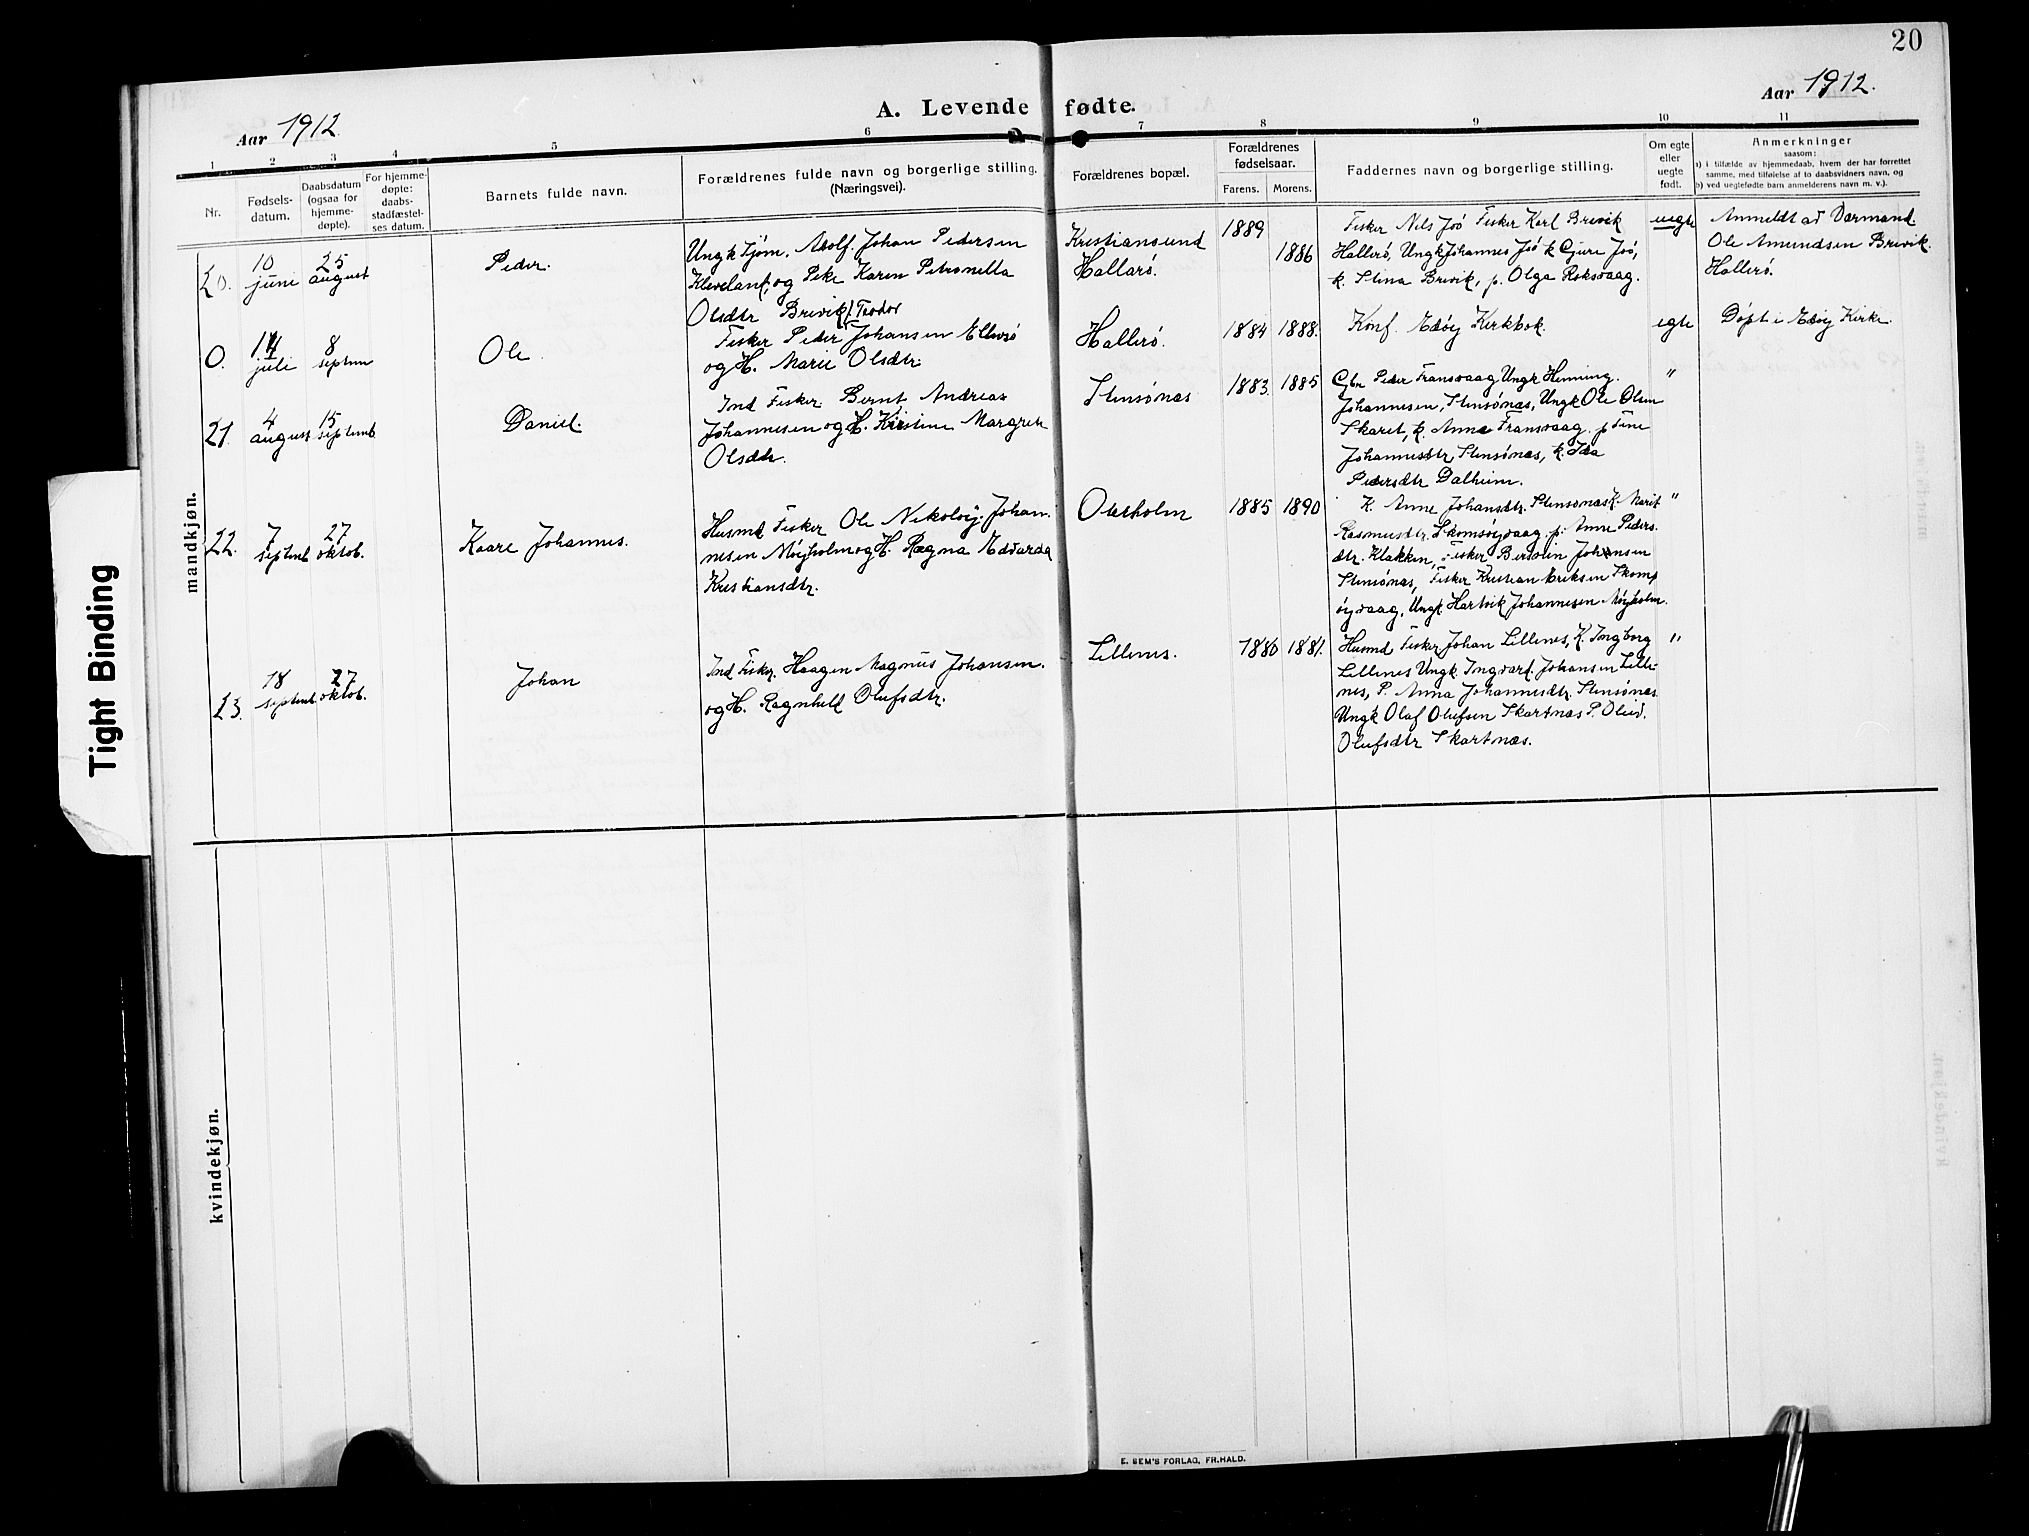 20
Aar 1912.
A. Levende fødte.
Aar 1912.
1 2 3 4 5 6 7 8 9 10 11
Nr.
Fødsels-
datum.
Daabsdatum
(ogsaa for
hjemme-
døpte).
For hjemme-
døpte:
daabs-
stadfæstel-
ses datum.
Barnets fulde navn.
Forældrenes fulde navn og borgerlige stilling.
(Næringsvei).
Forældrenes bopæl.
Forældrenes
fødselsaar.
Farens. Morens.
Faddernes navn og borgerlige stilling.
Om egte
eller
uegte
født.
Anmerkninger
saasom:
a) i tilfælde av hjemmedaab, hvem der har forrettet
samme, med tilføielse af to daabsvidners navn, og
b) ved uegtefødte barn anmelderens navn m. v.).
mandkjøn.
20.
10
juni
25
august
Peder.
Ungk Sjøm. Adolf Johan Pedersen
Kleveland, og Pike Karen Petronella
Olsdtr Brevik
Kristiansund
Hallarø.
1889
1886
Fisker Nils Jøø Fisker Karl Brevik
Hallerø, Ungk Johannes Jøø k Gjure Jøø,
k. Stina Brevik, p. Olga Roksvaag.
uegte
Anmeldt ad Dørmand.
Ole Amundsen Brevik.
Hallerø.
0.
14
juli
8
septem
Ole.
Teodor
Fisker Peder Johansen Ellevsø
og H. Marie Olsdtr.
Hallerø.
1884 1888.
Konf. Edøy Kirkbok.
egte
Døpt i Edøy Kirke.
21.
4
august
15
septemb
Daniel.
Ind Fisker Bernt Andreas
Johannesen og H. Kristine Margrete
Olsdtr.
Stensønæs
1883. 1885
Gbr Peder Fransvaag Ungk Henning.
Johannesen, Stensønæs, Ungk Ole Olsen
Skaret, k. Anne Fransvaag. p Tine
Johannesdtr Stensønæs, k. Ida
Pedersdtr Dalheim.
"
22.
7
septemb
27
oktob.
Kaare Johannes.
Husmd Fisker Ole Nikolay Johan-
nesen Møyholm og H. Ragna Edvarda
Kristiansdtr.
Oterholm
1885 1890
K. Anne Johansdtr. Stensønæs K. Marit
Rasmusdtr. Skomsøyvaag p. Anne Peders-
dtr. Klakken, Fisker Bersvein Johansen
Stensønæs, Fisker Kristian Eriksen Skoms
øyvaag, Ungk Hartvik Johannesen Møyholm.
"
23.
18
septemb.
27
oktob.
Johan
Ind Fisker Haagen Magnus Johansen.
og H. Ragnhild Olufsdtr.
Lillenes.
1880 1881.
Husmd Fisker Johan Lillenes, K. Ingborg
Lillenes Ungk Ingvard. Johansen Lille-
nes, P. Anna Johannesdtr. Stensønæs.
Ungk Olaf Olufsen Skartnæs P. Oluf.
Olufsdtr Skartnæs.
"
kvindekjøn.
Tight Binding
E. SEM'S FORLAG, FR.HALD.